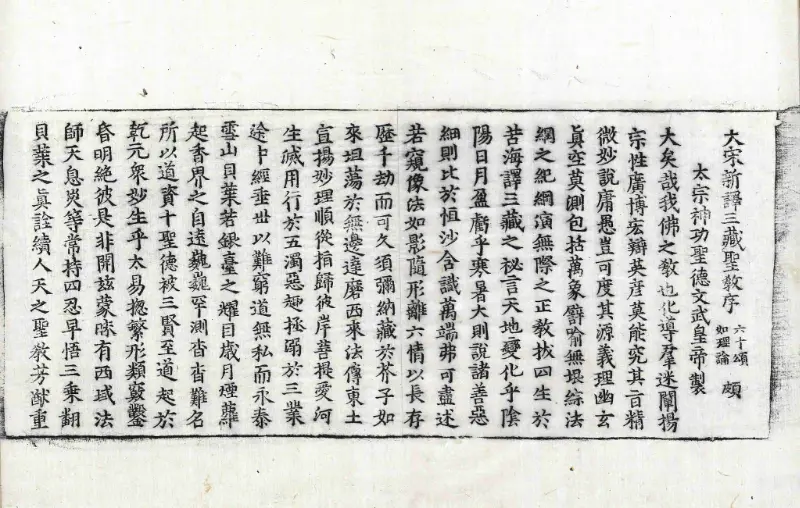 大宋新譯三藏聖教序 六十頌如理論 頗
太宗神功聖德文武皇帝製
大矣哉我佛之教也化導羣迷闡揚
宗性廣博宏辯英彥莫能究其旨精
微妙說庸愚豈可度其源義理幽玄
眞空莫測包括萬象譬喻無垠綜法
網之紀綱演無際之正教拔四生於
苦海譯三藏之秘言天地變化乎陰
陽日月盈虧乎寒暑大則說諸善惡
細則比於恒沙含識萬端弗可盡述
若窺像法如影隨形離六情以長存
歷千劫而可久須彌納藏於芥子如
來坦蕩於無邊達磨西來法傳東土
宣揚妙理順從指歸彼岸菩提愛河
生滅用行於五濁惡趣拯溺於三業
途中經垂世以難窮道無私而永泰
雪山貝葉若銀臺之耀目歲月煙蘿
起香界之自遠巍巍罕測杳杳難名
所以道資十聖德被三賢至道起於
乾元衆妙生乎太易揔繁形類竅鑿
昏明絕彼是非開玆蒙昧有西域法
師天息災等常持四忍早悟三乘翻
貝葉之眞詮續人天之聖教芳猷重